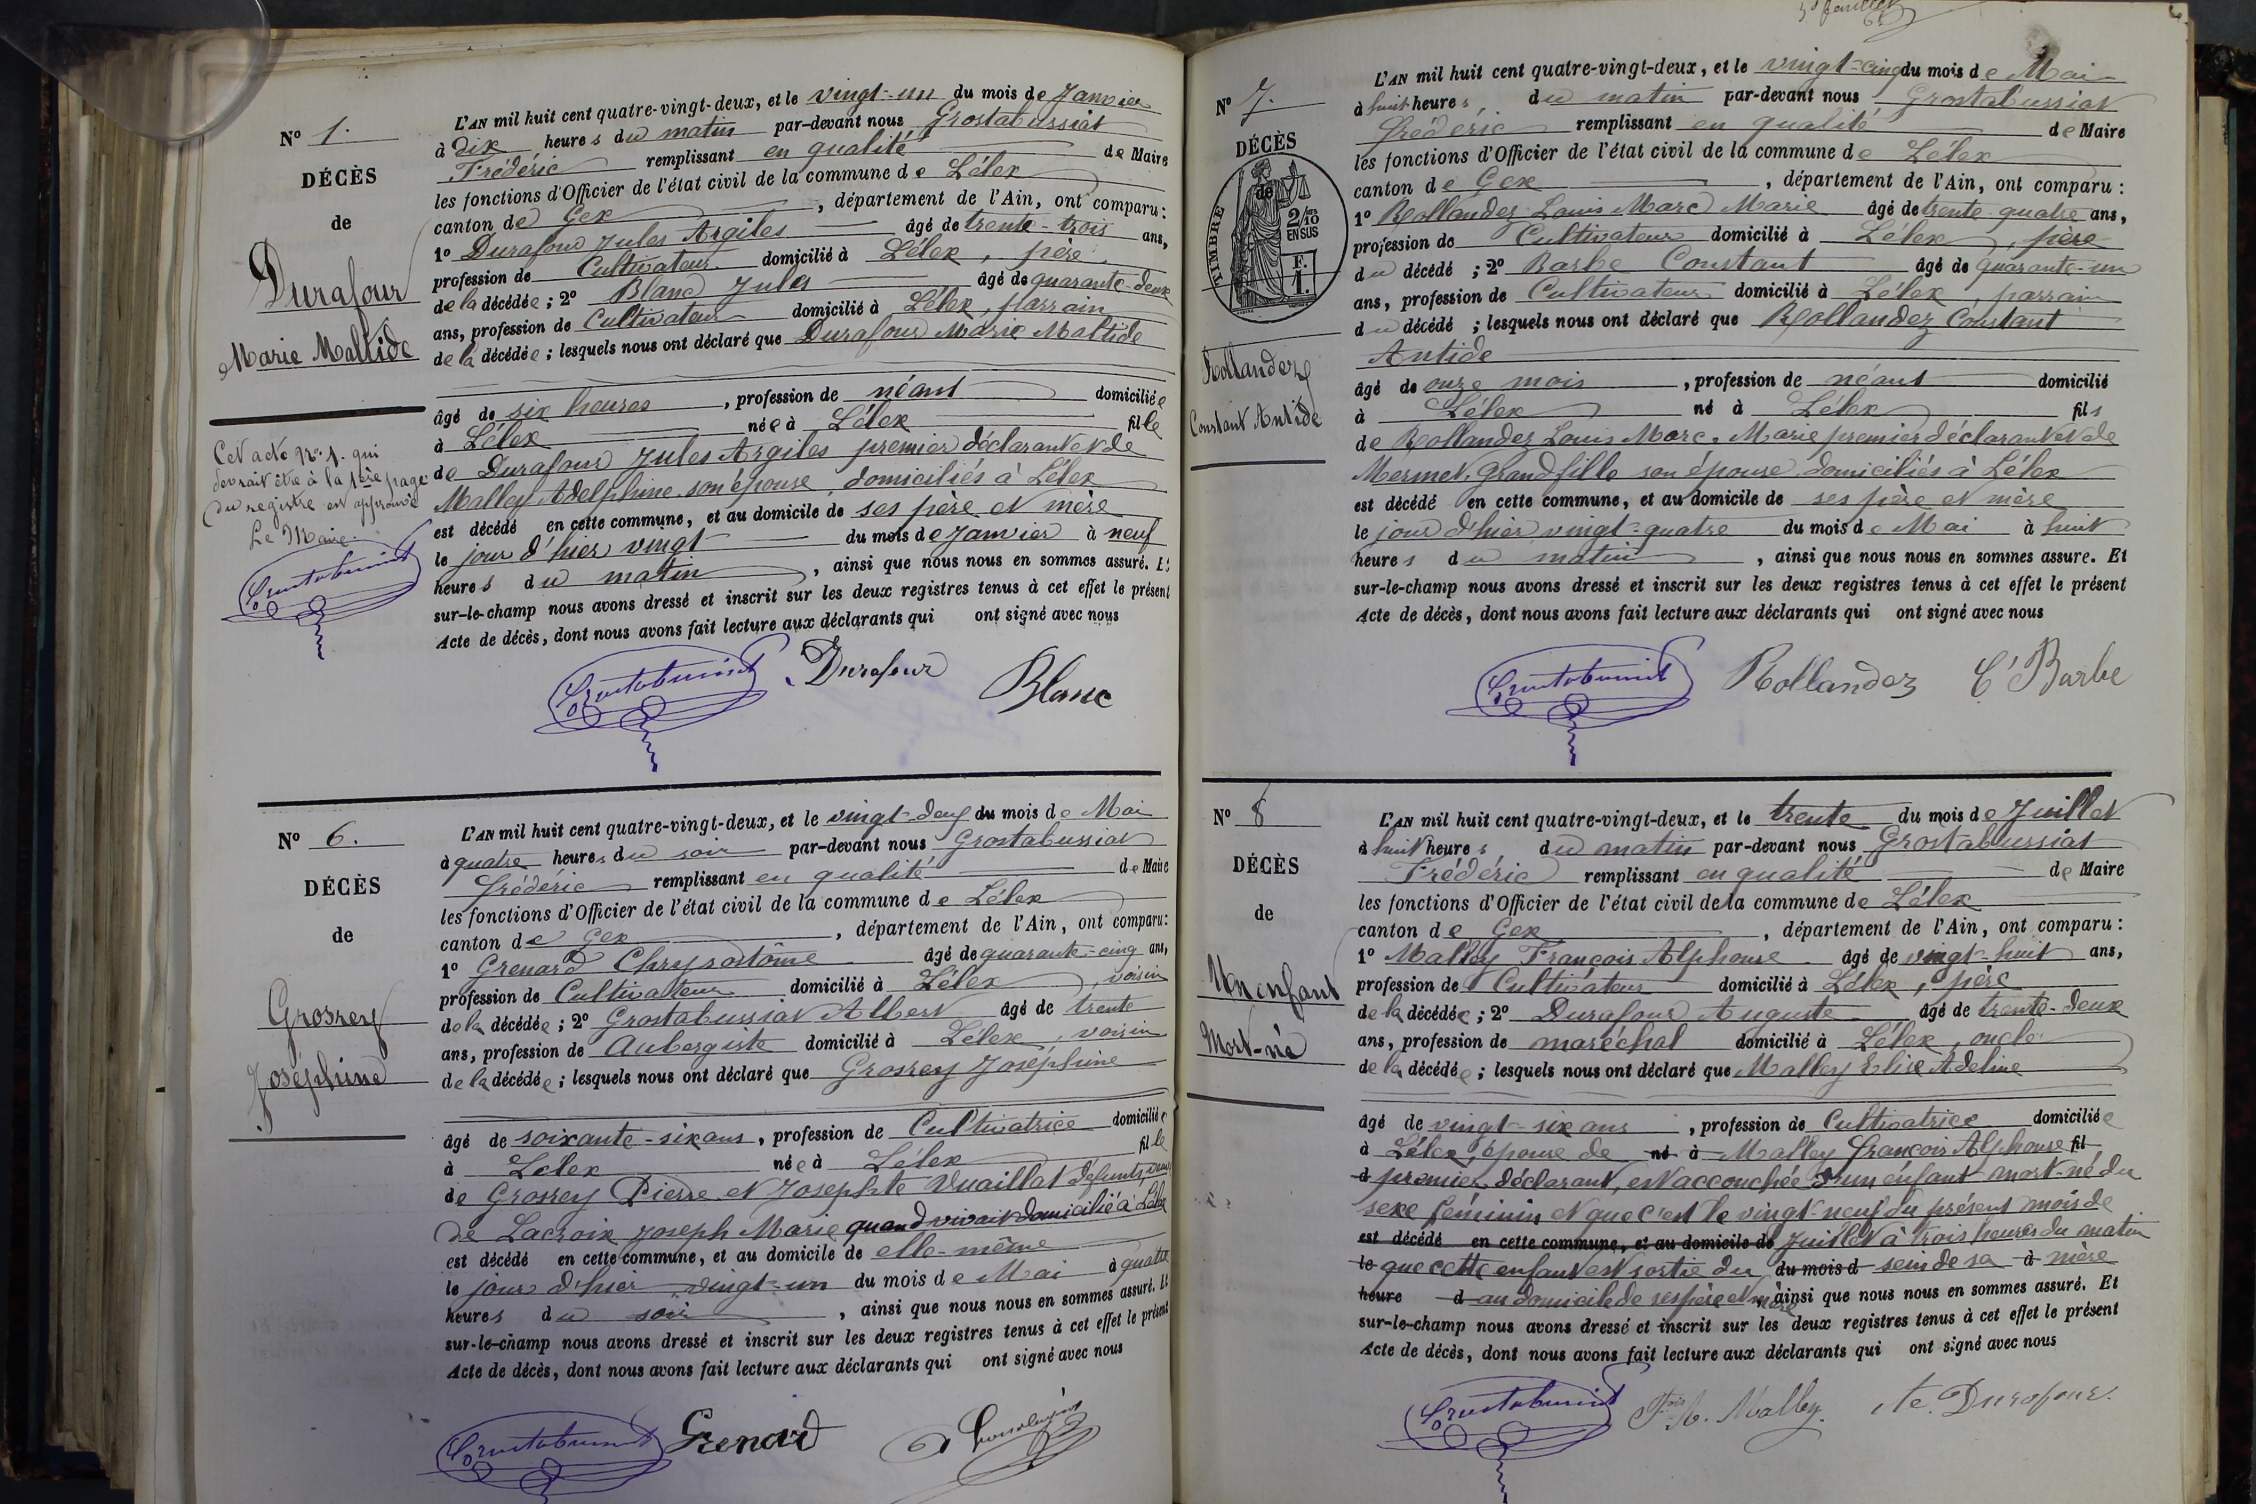 N° 1.
DÉCÈS
de
Durafour
Marie Maltide
Cet acte N° 1. qui
devrait être à la 1ère page
du registre est approuvé
Le Maire
L'AN mil huit cent quatre-vingt-deux, et le vingt-un du mois de Janvier
à dix heures du matin par-devant nous Grostabussiat
Frédéric remplissant en qualité de Maire
les fonctions d'Officier de l'état civil de la commune de Lélex
canton de Gex, département de l'Ain, ont comparu:
1° Durafour Jules Argiles âgé de trente-trois ans,
profession de Cultivateur domicilié à Lélex, père
de la décédée; 2° Blanc Jules âgé de quarante-deux
ans, profession de Cultivateur domicilié à Lélex, parrain
de la décédée; lesquels nous ont déclaré que Durafour Marie Maltide
âgé de six heures, profession de néant domiciliée
à Lélex née à Lélex fille
de Durafour Jules Argiles premier déclarant et de
Malley Adelphine son épouse domiciliés à Lélex
est décédé en cette commune, et au domicile de ses père et mère
le jour d'hier vingt du mois de Janvier à neuf
heures du matin, ainsi que nous nous en sommes assuré. Et
sur-le-champ nous avons dressé et inscrit sur les deux registres tenus à cet effet le présent
Acte de décès, dont nous avons fait lecture aux déclarants qui ont signé avec nous
Grostabussiat Durafour Blanc
N° 6.
DÉCÈS
de
Grosrey
Joséphine
L'AN mil huit cent quatre-vingt-deux, et le vingt-deux du mois de Mai
à quatre heures du soir par-devant nous Grostabussiat
Frédéric remplissant en qualité de Maire
les fonctions d'Officier de l'état civil de la commune de Lélex
canton de Gex, département de l'Ain, ont comparu:
1° Grenard Chrysostôme âgé de quarante-cinq ans,
profession de Cultivateur domicilié à Lélex, voisin
de la décédée; 2° Grostabussiat Albert âgé de trente
ans, profession de Aubergiste domicilié à Lélex, voisin
de la décédée; lesquels nous ont déclaré que Grosrey Joséphine
âgé de soixante-six ans, profession de Cultivatrice domiciliée
à Lélex née à Lélex fille
de Grosrey Pierre et Josephte Vuaillat défunts, veuve
de Lacroix Joseph Marie quand vivait domicilié à Lélex
est décédé en cette commune, et au domicile de elle-même
le jour d'hier vingt-un du mois de Mai à quatre
heures du soir, ainsi que nous nous en sommes assuré. Et
sur-le-champ nous avons dressé et inscrit sur les deux registres tenus à cet effet le présent
Acte de décès, dont nous avons fait lecture aux déclarants qui ont signé avec nous
Grostabussiat Grenard
N° 7.
DÉCÈS
de
TIMBRE
2/10
EN SUS
F.
1.
Rollandez
Constant Antide
L'AN mil huit cent quatre-vingt-deux, et le vingt-cinq du mois de Mai
à huit heures, du matin par-devant nous Grostabussiat
Frédéric remplissant en qualité de Maire
les fonctions d'Officier de l'état civil de la commune de Lélex
canton de Gex, département de l'Ain, ont comparu:
1° Rollandez Louis Marc Marie âgé de trente-quatre ans,
profession de Cultivateur domicilié à Lélex, père
du décédé; 2° Barbe Constant âgé de quarante-un
ans, profession de Cultivateur domicilié à Lélex, parrain
du décédé; lesquels nous ont déclaré que Rollandez Constant
Antide
âgé de onze mois, profession de néant domicilié
à Lélex né à Lélex fils
de Rollandez Louis Marc. Marie premier déclarant et de
Mermet, Grandfille son épouse domiciliés à Lélex
est décédé en cette commune, et au domicile de ses père et mère
le jour d'hier vingt-quatre du mois de Mai à huit
heures du matin, ainsi que nous nous en sommes assure. Et
sur-le-champ nous avons dressé et inscrit sur les deux registres tenus à cet effet le présent
Acte de décès, dont nous avons fait lecture aux déclarants qui ont signé avec nous
Grostabussiat Rollandez Ct Barbe
N° 8
DÉCÈS
de
Un enfant
Mort-né
L'AN mil huit cent quatre-vingt-deux, et le trente du mois de Juillet
à huit heures du matin par-devant nous Grostabussiat
Frédéric remplissant en qualité de Maire
les fonctions d'Officier de l'état civil de la commune de Lélex
canton de Gex, département de l'Ain, ont comparu:
1° Malley François Alphonse âgé de vingt-huit ans,
profession de Cultivateur domicilié à Lélex, père
de la décédée; 2° Durafour Auguste âgé de trente-deux
ans, profession de maréchal domicilié à Lélex, oncle
de la décédée; lesquels nous ont déclaré que Malley Elise Adeline
âgé de vingt-six ans, profession de Cultivatrice domiciliée
à Lélex, épouse de né à Malley François Alphonse fil
d premier déclarant, est accouchée d'un enfant mort-né du
sexe féminin et que c'est le vingt-neuf du présent mois de
est décédé en cette commune, et au domicile de Juillet à trois heures du matin
le que cette enfant est sortie du du mois d sein de sa à mère
heure d au domicile de ses père et mère, ainsi que nous nous en sommes assuré. Et
sur-le-champ nous avons dressé et inscrit sur les deux registres tenus à cet effet le présent
Acte de décès, dont nous avons fait lecture aux déclarants qui ont signé avec nous
Grostabussiat Fçois A. Malley. Ate. Durafour.